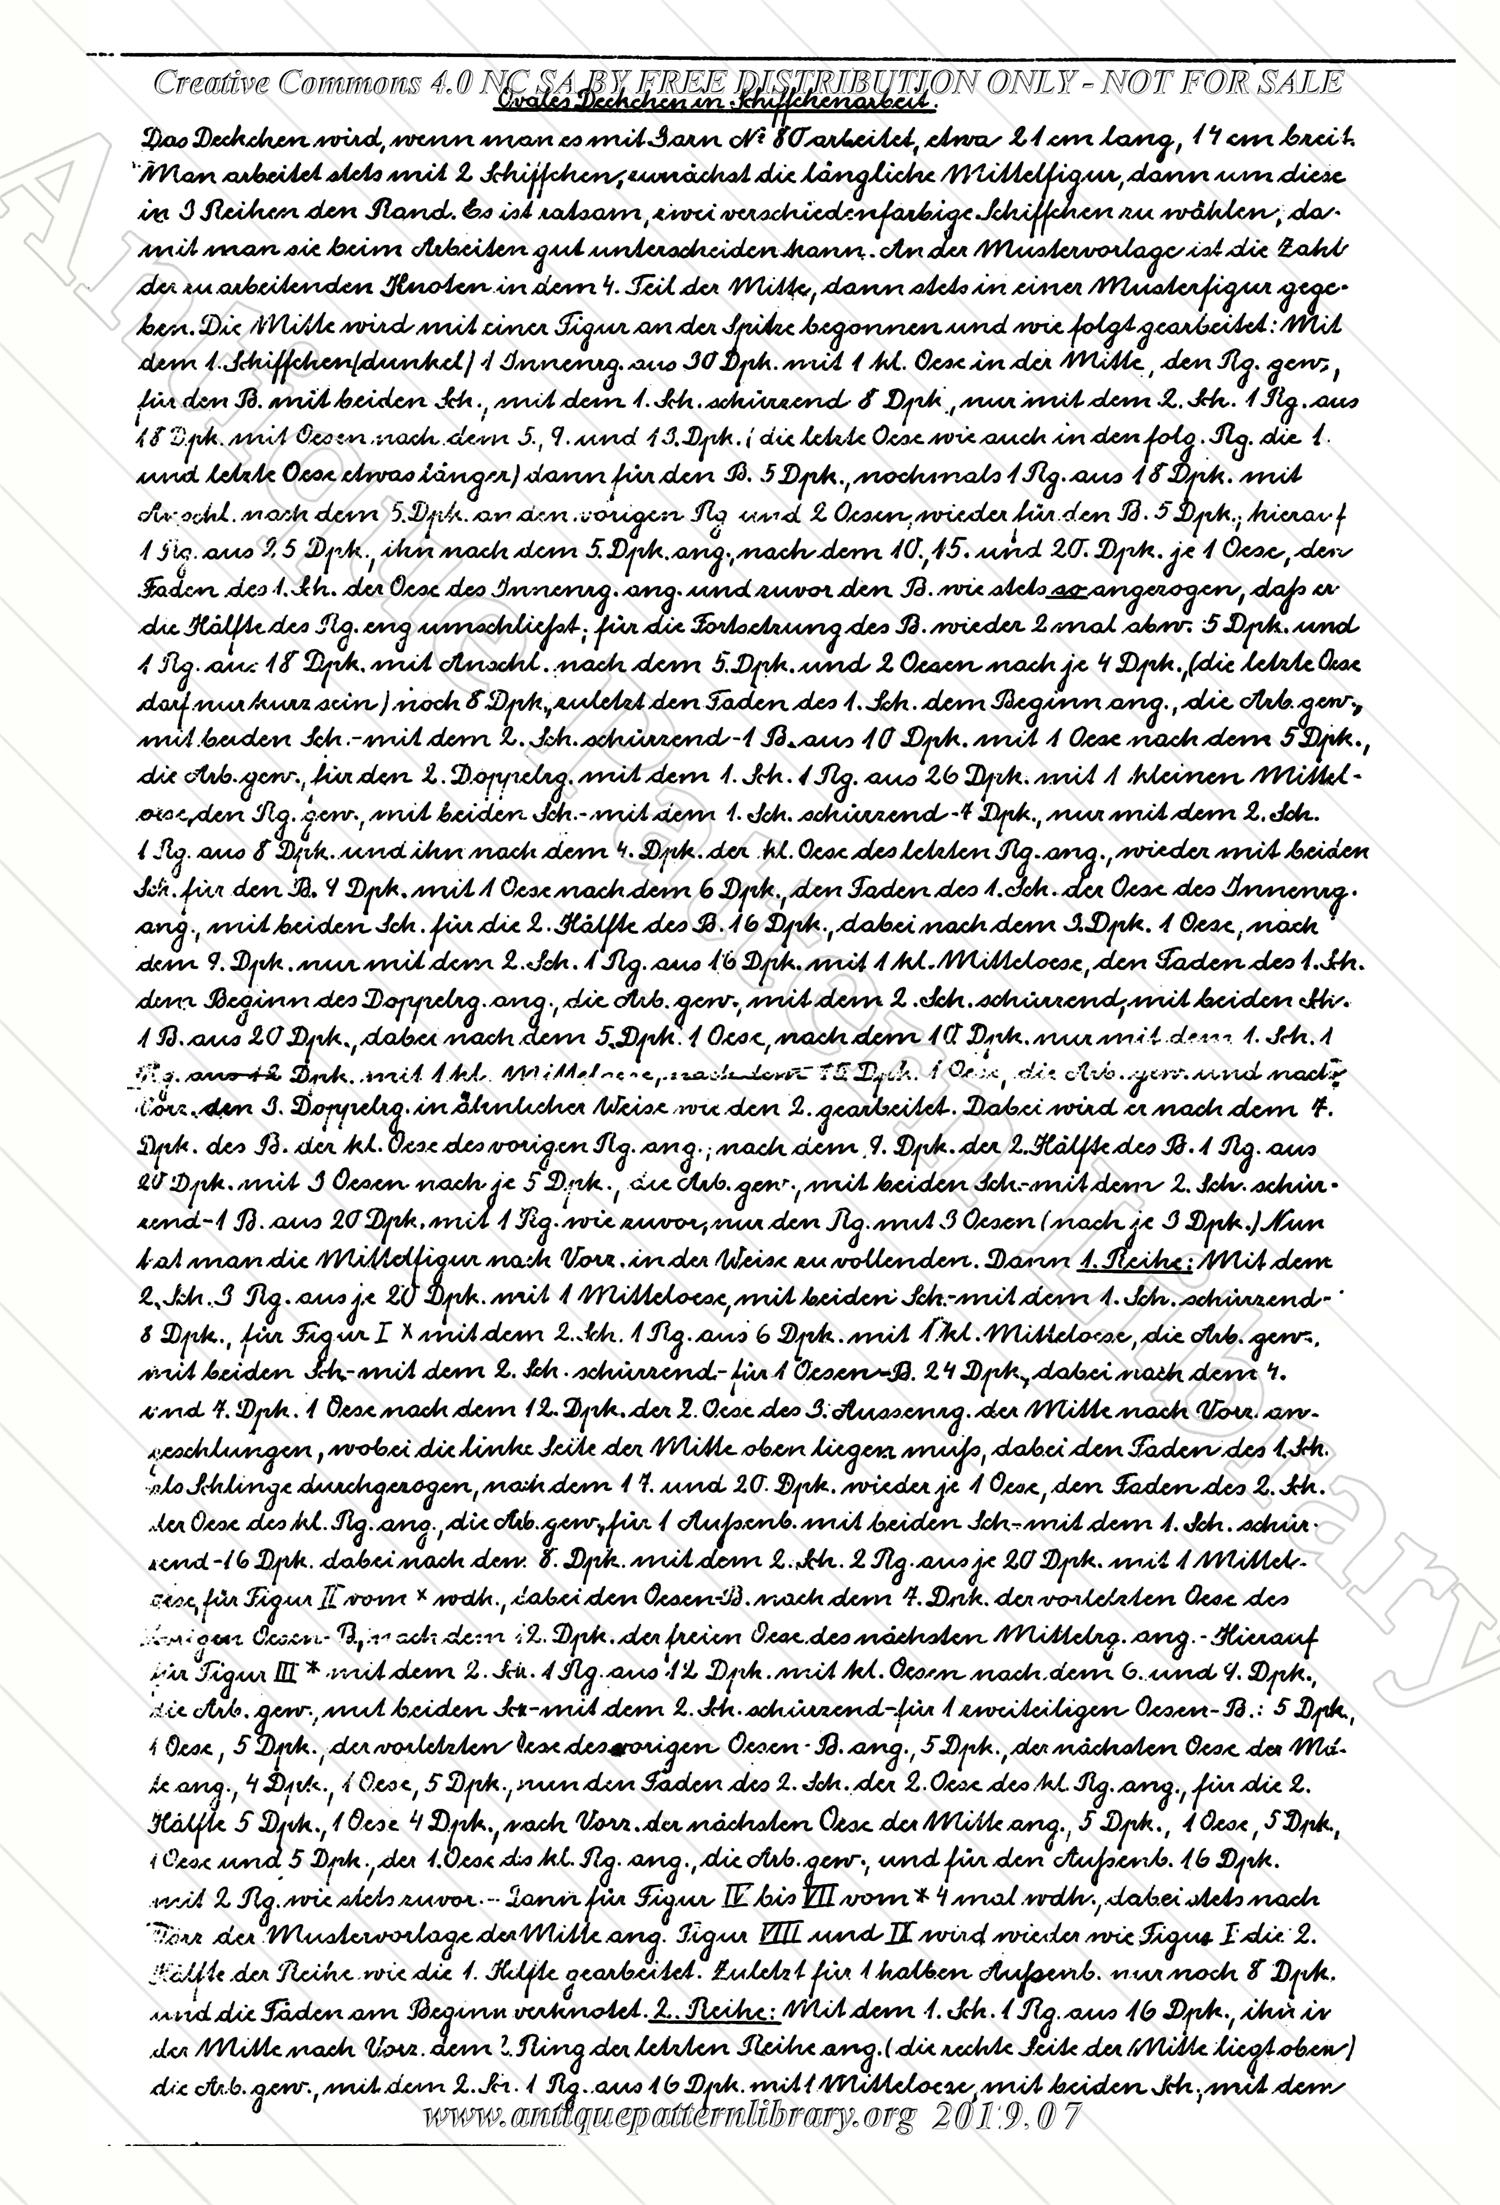 Creative Commons 4.0 NC SA BY FREE DISTRIBUTION ONLY - NOT FOR SALE
Ovales Deckchen in Schiffchenarbeit.
Das Deckchen wird, wenn man es mit Garn № 80 arbeitet, etwa 21 cm lang, 14 cm breit.
Man arbeitet stets mit 2 Schiffchen, zunächst die längliche Mittelfigur, dann um diese
in 3 Reihen den Rand. Es ist ratsam, zwei verschiedenfarbige Schiffchen zu wählen, da-
mit man sie beim Arbeiten gut unterscheiden kann. An der Mustervorlage ist die Zahl
der zu arbeitenden Knoten in dem 4. Teil der Mitte, dann stets in einer Musterfigur gege-
ben. Die Mitte wird mit einer Figur an der Spitze begonnen und wie folgt gearbeitet: Mit
dem 1. Schiffchen (dunkel) 1 Innenrg. aus 30 Dpk. mit 1 kl. Oese in der Mitte, den Rg. gew.,
für den B. mit beiden Sch., mit dem 1. Sch. schürzend 8 Dpk., nur mit dem 2. Sch. 1 Rg. aus
18 Dpk. mit Oesen nach dem 5., 9. und 13. Dpk. (die letzte Oese wie auch in den folg. Rg. die 1.
und letzte Oese etwas länger) dann für den B. 5 Dpk., nochmals 1 Rg. aus 18 Dpk. mit
Anschl. nach dem 5. Dpk. an den vorigen Rg und 2 Oesen, wieder für den B. 5 Dpk., hierauf
1 Rg. aus 25 Dpk., ihn nach dem 5. Dpk. ang., nach dem 10., 15. und 20. Dpk. je 1 Oese, den
Faden des 1. Sch. der Oese des Innenrg. ang. und zuvor den B. wie stets so angezogen, daß er
die Hälfte des Rg. eng umschließt; für die Fortsetzung des B. wieder 2 mal abw. 5 Dpk. und
1 Rg. aus 18 Dpk. mit Anschl. nach dem 5. Dpk. und 2 Oesen nach je 4 Dpk., (die letzte Oese
darf nur kurz sein) noch 8 Dpk., zuletzt den Faden des 1. Sch. dem Beginn ang., die Arb. gew.,
mit beiden Sch.-mit dem 2. Sch. schürzend-1 B. aus 10 Dpk. mit 1 Oese nach dem 5 Dpk.,
die Arb. gew., für den 2. Doppelrg. mit dem 1. Sch. 1 Rg. aus 26 Dpk. mit 1 kleinen Mittel-
oese, den Rg. gew., mit beiden Sch.-mit dem 1. Sch. schürzend-7 Dpk., nur mit dem 2. Sch.
1 Rg. aus 8 Dpk. und ihn nach dem 4. Dpk. der kl. Oese des letzten Rg. ang., wieder mit beiden
Sch. für den B. 9 Dpk. mit 1 Oese nach dem 6 Dpk., den Faden des 1. Sch. der Oese des Innenrg.
ang., mit beiden Sch. für die 2. Hälfte des B. 16 Dpk., dabei nach dem 3. Dpk. 1 Oese, nach
dem 9. Dpk. nur mit dem 2. Sch. 1 Rg. aus 16 Dpk. mit 1 kl. Mitteloese, den Faden des 1. Sch.
dem Beginn des Doppelrg. ang., die Arb. gew., mit dem 2. Sch. schürzend, mit beiden Sch.
1 B. aus 20 Dpk., dabei nach dem 5. Dpk. 1 Oese, nach dem 10. Dpk. nur mit dem 1. Sch. 1
Rg. aus 12 Dpk. mit 1 kl. Mitteloese, nach dem 15 Dpk. 1 Oese, die Arb. gew. und nach
Vorz. den 3. Doppelrg. in ähnlicher Weise wie den 2. gearbeitet. Dabei wird er nach dem 7.
Dpk. des B. der kl. Oese des vorigen Rg. ang., nach dem 9. Dpk. der 2. Hälfte des B. 1 Rg. aus
20 Dpk. mit 3 Oesen nach je 5 Dpk., die Arb. gew., mit beiden Sch.-mit dem 2. Sch. schür-
zend-1 B. aus 20 Dpk. mit 1 Rg. wie zuvor, nur den Rg. mit 3 Oesen (nach je 3 Dpk.) Nun
hat man die Mittelfigur nach Vorz. in der Weise zu vollenden. Dann 1. Reihe: Mit dem
2. Sch. 3 Rg. aus je 20 Dpk. mit 1 Mitteloese, mit beiden Sch.-mit dem 1. Sch. schürzend-
8 Dpk., für Figur I × mit dem 2. Sch. 1 Rg. aus 6 Dpk. mit 1 kl. Mitteloese, die Arb. gew.,
mit beiden Sch.-mit dem 2. Sch. schürzend-für 1 Oesen-B. 24 Dpk., dabei nach dem 4.
und 7. Dpk. 1 Oese nach dem 12. Dpk. der 2. Oese des 3. Aussenrg. der Mitte nach Vorz. an-
geschlungen, wobei die linke Seite der Mitte oben liegen muß, dabei den Faden des 1. Sch.
als Schlinge durchgezogen, nach dem 17. und 20. Dpk. wieder je 1 Oese, den Faden des 2. Sch.
der Oese des kl. Rg. ang., die Arb. gew., für 1 Außenb. mit beiden Sch.-mit dem 1. Sch. schür-
zend-16 Dpk. dabei nach dem 8. Dpk. mit dem 2. Sch. 2 Rg. aus je 20 Dpk. mit 1 Mittel-
oese, für Figur II vom × wdh., dabei den Oesen-B. nach dem 7. Dpk. der vorletzten Oese des
vorigen Oesen-B., nach dem 12. Dpk. der freien Oese des nächsten Mittelrg. ang.- Hierauf
für Figur III * mit dem 2. Sch. 1 Rg. aus 12 Dpk. mit kl. Oesen nach dem 6. und 9. Dpk.,
die Arb. gew., mit beiden Sch-mit dem 2. Sch. schürzend-für 1 zweiteiligen Oesen-B.: 5 Dpk.,
1 Oese, 5 Dpk., der vorletzten Oese des vorigen Oesen-B. ang., 5 Dpk., der nächsten Oese der Mit-
te ang., 4 Dpk., 1 Oese, 5 Dpk., nun den Faden des 2. Sch. der 2. Oese des kl. Rg. ang., für die 2.
Hälfte 5 Dpk., 1 Oese 4 Dpk., nach Vorz. der nächsten Oese der Mitte ang., 5 Dpk., 1 Oese, 5 Dpk.,
1 Oese und 5 Dpk., der 1. Oese ds kl. Rg. ang., die Arb. gew., und für den Außenb. 16 Dpk.
mit 2 Rg. wie stets zuvor.- Dann für Figur IV bis VII vom * 4 mal wdh., dabei stets nach
Vorz der Mustervorlage der Mitte ang. Figur VIII und IX wird wieder wie Figur I die 2.
Hälfte der Reihe wie die 1. Hälfte gearbeitet. Zuletzt für 1 halben Außenb. nur noch 8 Dpk.
und die Fäden am Beginn verknotet. 2. Reihe: Mit dem 1. Sch. 1 Rg. aus 16 Dpk., ihn in
der Mitte nach Vorz. dem 2. Ring der letzten Reihe ang. (die rechte Seite der Mitte liegt oben)
die Arb. gew., mit dem 2. Sch. 1 Rg. aus 16 Dpk. mit 1 Mitteloese, mit beiden Sch., mit dem
www.antiquepatternlibrary.org 2019.07
Antique Pattern Library